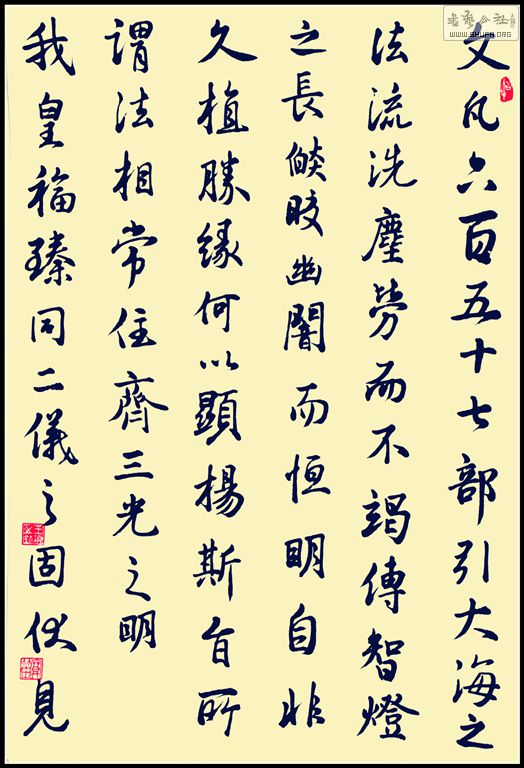 文凡六百五十七部引大海之
法流洗塵勞而不竭傳智燈
之長燄晈幽闇而恒明自非
久植勝緣何以顯楊斯旨所
謂法相常住齊三光之明
我皇福臻同二儀之固伏見
書藝公社
WWW.SHUFA.ORG